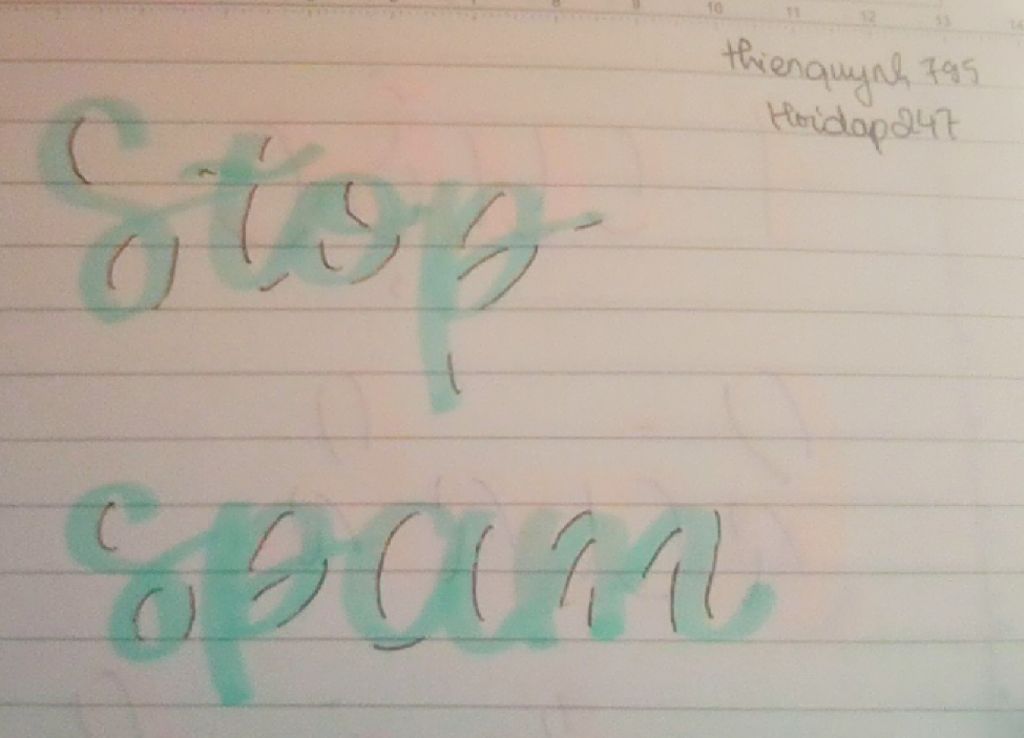 thienquynh 795
Hoidap247
Stop
spam